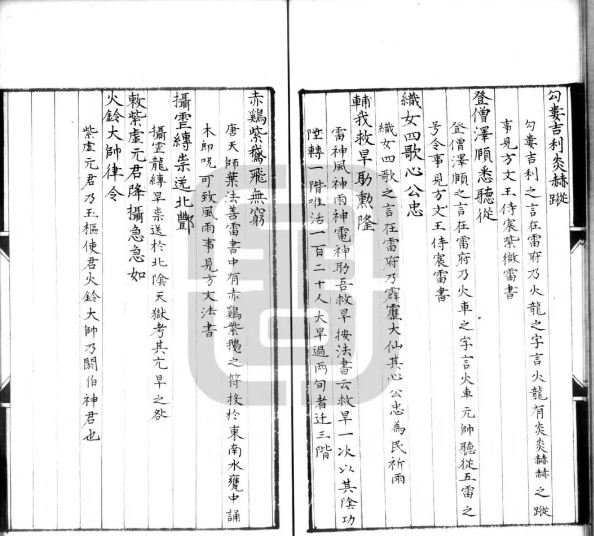 勾婁吉利炎赫蹤
勾婁吉利之言在雷府乃火龍之字言火龍有炎炎赫赫之蹤
事見方丈王侍宸紫微雷書
登僧澤願悉聽從
登僧澤願之言在雷府乃火車之字言火車元帥聽從五雷之
号令事見方丈王侍宸雷書
織女四歌心公忠
織女四歌之言在雷府乃霹靂大仙其心公忠為民祈雨
輔我救旱助勲隆
雷神風神雨神電神助吾救旱按法書云救旱一次以其陰功
陞轉一階唯活一百二十人大旱過兩旬者迁三階
赤鷄紫鵞飛無窮
唐天師葉法善雷書中有赤鷄紫鵞之符投於東南水甕中誦
木郎呪可致風雨事見方丈法書
攝霊縛祟送北酆
攝霊龍縛旱祟送於北陰天獄考其亢旱之欲
敕紫虛元君降攝急急如
火鈴大帥律令
紫虛元君乃玉樞使君火鈴大帥乃閼伯神君也